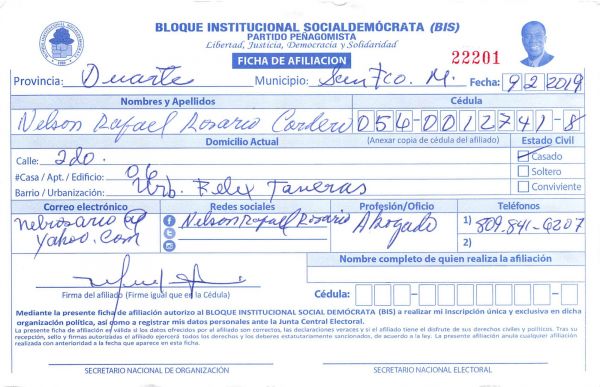 BLOQUE INSTITUCIONAL SOCIALDEMÓCRATA (BIS)
PARTIDO PEÑAGOMISTA
Libertad, Justicia, Democracia y Solidaridad
FICHA DE AFILIACION
22201
Provincia: Duarte Municipio: San Fco. M. Fecha: 9 2 2019
Nombres y Apellidos Cédula
Nelson Rafael Rosario Cordero 056-0012741-8
Domicilio Actual (Anexar copia de cédula del afiliado) Estado Civil
Calle: 2do. Casado
#Casa / Apt. / Edificio: 06 Soltero
Barrio / Urbanización: Urb. Felix Taveras Conviviente
Correo electrónico Redes sociales Profesión/Oficio Teléfonos
nebrosario@ Nelson Rafael Rosario Abogado 1) 809.841-6207
yahoo.com 2)
Nombre completo de quien realiza la afiliación
Firma del afiliado (Firme igual que en la Cédula) Cédula:
Mediante la presente ficha de afiliación autorizo al BLOQUE INSTITUCIONAL SOCIAL DEMÓCRATA (BIS) a realizar mi inscripción única y exclusiva en dicha
organización política, así como a registrar mis datos personales ante la Junta Central Electoral.
La presente ficha de afiliación es válida si los datos ofrecidos por el afiliado son correctos, las declaraciones veraces y si el afiliado tiene el disfrute de sus derechos civiles y políticos. Tras su
recepción, sello y firmas autorizadas el afiliado ejercerá todos los derechos y los deberes estatutariamente sancionados, de acuerdo a la ley. La presente afiliación anula cualquier afiliación
realizada con anterioridad a la fecha que aparece en esta ficha.
SECRETARIO NACIONAL DE ORGANIZACIÓN SECRETARIO NACIONAL ELECTORAL